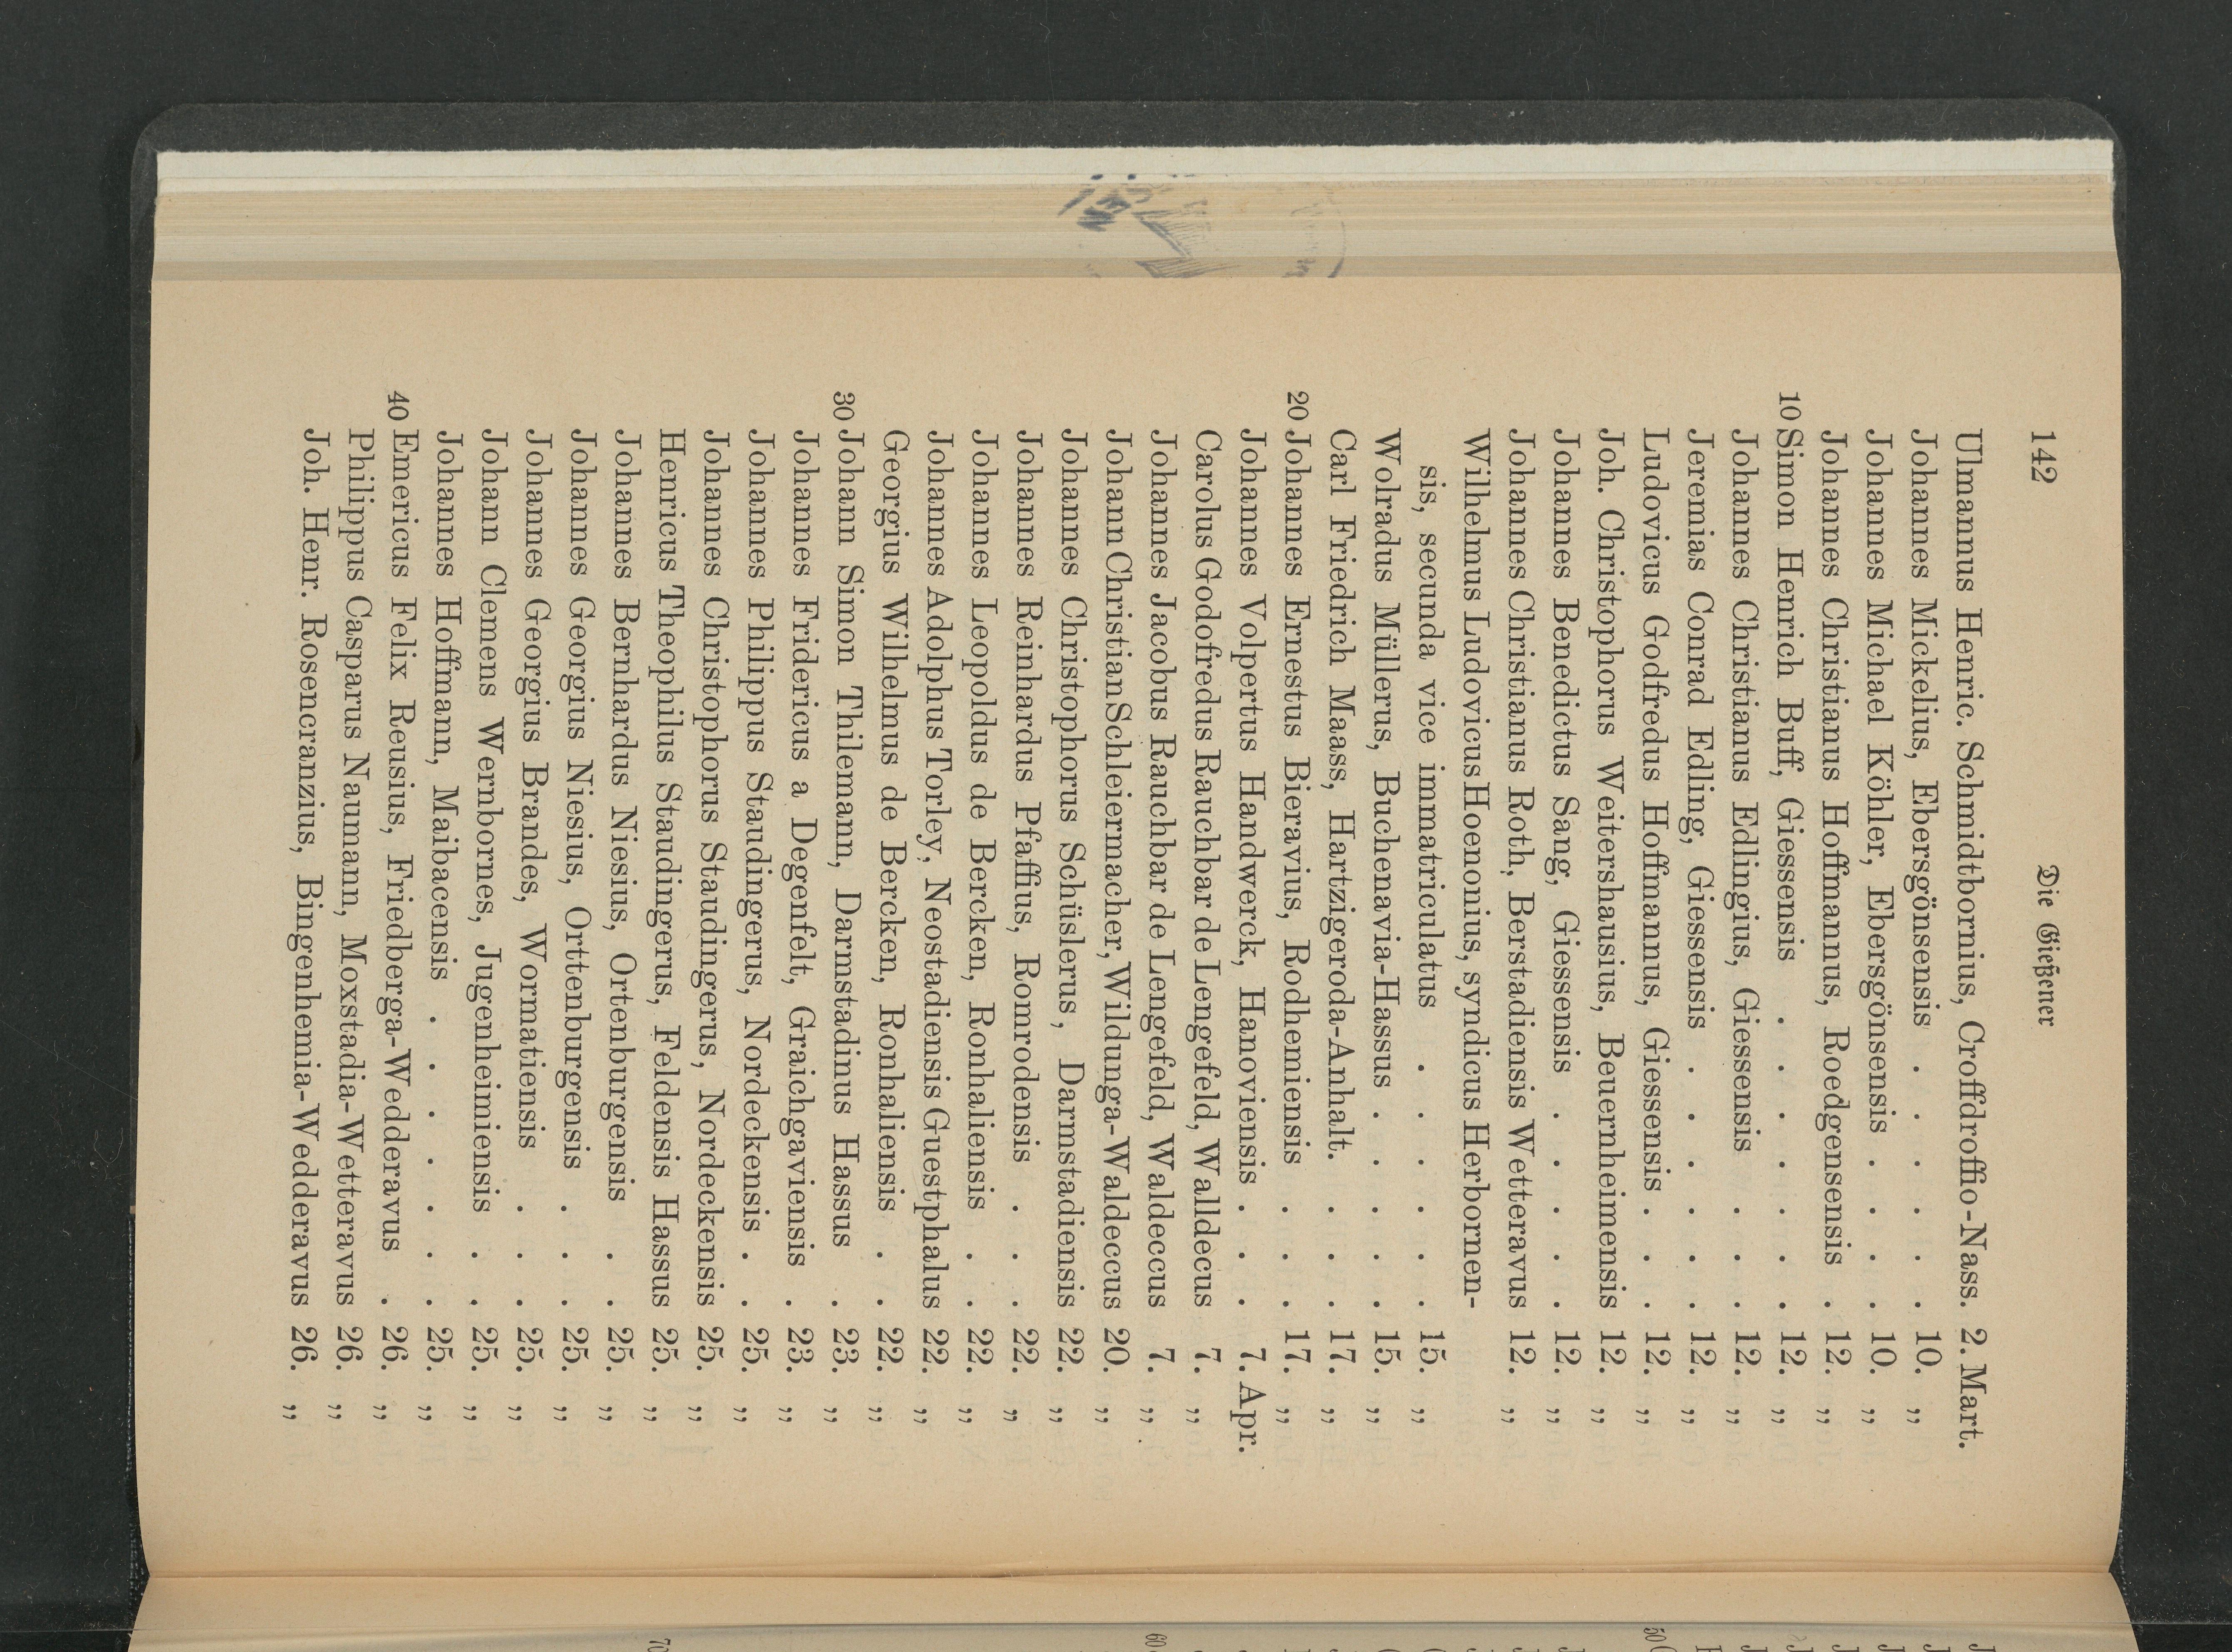 142 Die Gießener
Ulmannus Henric. Schmidtbornius, Croffdroffio-Nass. 2. Mart.
Johannes Mickelius, Ebersgönsensis . . . . . . 10. „
Johannes Michael Köhler, Ebersgönsensis . . . . 10. „
Johannes Christianus Hoffmannus, Roedgensensis . 12. „
10 Simon Henrich Buff, Giessensis . . . . . . . 12. „
Johannes Christianus Edlingius, Giessensis . . . 12. „
Jeremias Conrad Edling, Giessensis . . . . . . 12. „
Ludovicus Godfredus Hoffmannus, Giessensis . . . 12. „
Joh. Christophorus Weitershausius, Beuernheimensis 12. „
Johannes Benedictus Sang, Giessensis . . . . . 12. „
Johannes Christianus Roth, Berstadiensis Wetteravus 12. „
Wilhelmus Ludovicus Hoenonius, syndicus Herbornen-
sis, secunda vice immatriculatus . . . . . . 15. „
Wolradus Müllerus, Buchenavia-Hassus . . . . . 15. „
Carl Friedrich Maass, Hartzigeroda-Anhalt. . . . 17. „
20 Johannes Ernestus Bieravius, Rodhemiensis . . . 17. „
Johannes Volpertus Handwerck, Hanoviensis . . . 7. Apr.
Carolus Godofredus Rauchbar de Lengefeld, Walldecus 7. „
Johannes Jacobus Rauchbar de Lengefeld, Waldeccus 7. „
Johann Christian Schleiermacher, Wildunga-Waldeccus 20. „
Johannes Christophorus Schüslerus, Darmstadiensis 22. „
Johannes Reinhardus Pfaffius, Romrodensis . . . 22. „
Johannes Leopoldus de Bercken, Ronhaliensis . . 22. „
Johannes Adolphus Torley, Neostadiensis Guestphalus 22. „
Georgius Wilhelmus de Bercken, Ronhaliensis . . 22. „
30 Johann Simon Thilemann, Darmstadinus Hassus . 23. „
Johannes Fridericus a Degenfelt, Graichgaviensis . 23. „
Johannes Philippus Staudingerus, Nordeckensis . . 25. „
Johannes Christophorus Staudingerus, Nordeckensis 25. „
Henricus Theophilus Staudingerus, Feldensis Hassus 25. „
Johannes Bernhardus Niesius, Ortenburgensis . . 25. „
Johannes Georgius Niesius, Orttenburgensis . . . 25. „
Johannes Georgius Brandes, Wormatiensis . . . 25. „
Johann Clemens Wernbornes, Jugenheimiensis . . 25. „
Johannes Hoffmann, Maibacensis . . . . . . . 25. „
40 Emericus Felix Reusius, Friedberga-Wedderavus . 26. „
Philippus Casparus Naumann, Moxstadia-Wetteravus 26. „
Joh. Henr. Rosencranzius, Bingenhemia-Wedderavus 26. „
50
60
70